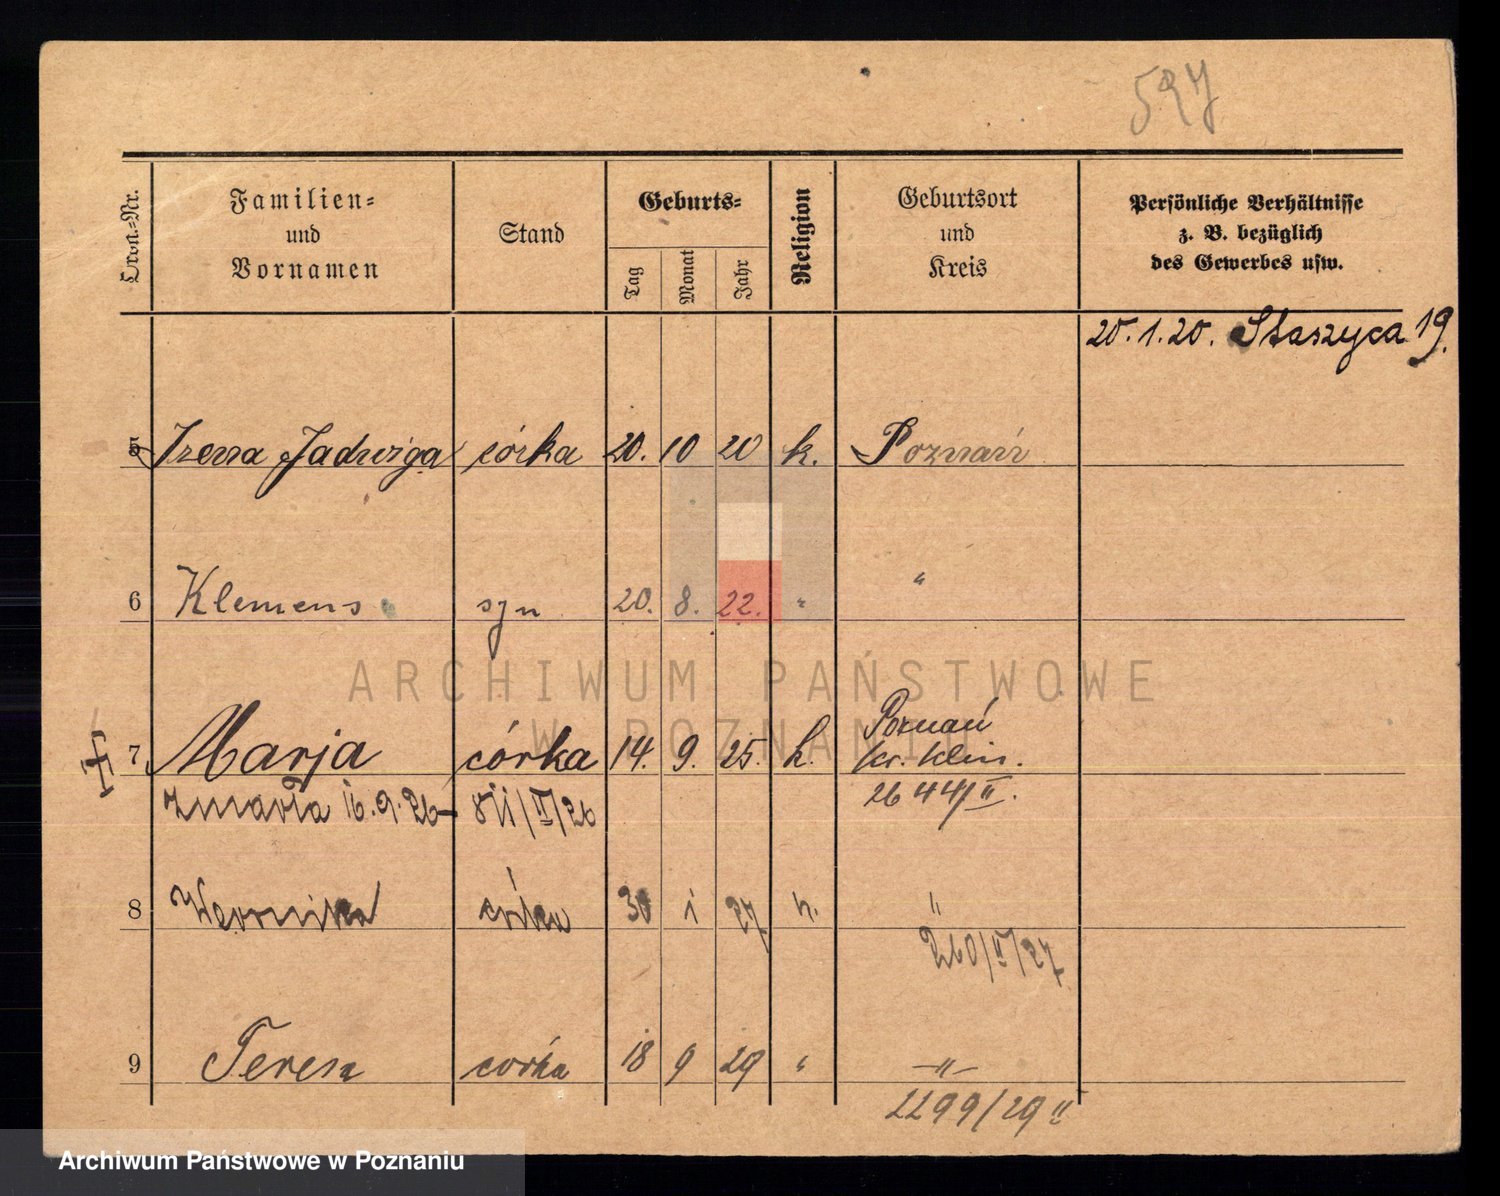 527
Ordn.-Nr.
Familien-
und
Vornamen
Stand
Geburts-
Tag
Monat
Jahr
Religion
Geburtsort
und
Kreis
Persönliche Verhältnisse
z. B. bezüglich
des Gewerbes usw.
20.1.20. Staszyca 19.
5 Irena Jadwiga córka 20. 10 20 k. Poznań
6 Klemens syn 20. 8. 22. " "
ARCHIWUM PAŃSTWOWE
W POZNANIU
7 Marja córka 14. 9. 25. k. Poznań
zmarła 16.9.26 – 811/II/26
2644/II.
8 Weronika córka 30 1 27 k. "
260/II/27
9 Teresa córka 18 9 29 " – " –
2299/29 II
Archiwum Państwowe w Poznaniu